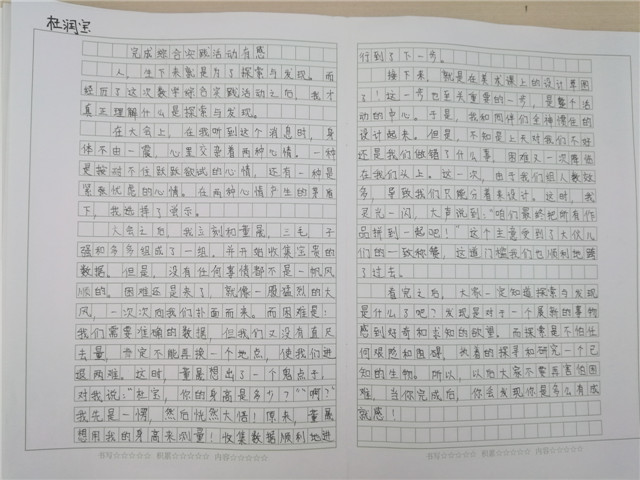 杜润宝
完成综合实践活动有感
人，生下来就是为了探索与发现。而
经历了这次数学综合实践活动之后，我才
真正理解什么是探索与发现。
在大会上，在我听到这个消息时，身
体不由一震，心里交杂着两种心情。一种
是按耐不住跃跃欲试的心情，还有一种是
紧张忧虑的心情。在两种心情产生的矛盾
下，我选择了前示。
大会之后，我立刻和董晟，三毛，子
强和多多组成了一组。并开始收集宝贵的
数据，但是，没有任何事情都不是一帆风
顺的。困难还是来了，就像一股猛烈的大
风，一次次向我们扑面而来。而困难是：
我们需要准确的数据，但我们又没有直尺
去量，肯定不能再换一个地点，使我们进
退两难。这时，董晟想出了一个鬼点子，
对我说：“杜宝，你的身高是多少？”“啊？”
我先是一愣，然后恍然大悟！原来，董晟
想用我的身高来测量！收集数据顺利地进
行到了下一步。
接下来，就是在美术课上的设计草图
了！这一步也至关重要的一步，是整个活
动的中心。于是，我和同伴们全神慣住的
设计起来。但是，不知是上天对我们不好
还是我们做错了什么事，困难又一次降临
在我们头上。这一次，由于我们组人数较
多，导致我们只能分着来设计。这时，我
灵光一闪，大声说到：“咱们最终把所有作
品拼到一起吧！”这个主意受到了大伙儿
们的一致称赞，这道门槛我们也顺利地跨
了过去。
看完之后，大家一定知道探索与发现
是什么了吧？发现是对于一个崭新的事物
感到好奇和求知的欲望。而探索是不怕任
何艰险和阻碍，执着的探寻和研究一个已
知的生物。所以，以后大家不要再害怕困
难，当你完成后，你会发现你是多么有成
就感！
书写☆☆☆☆☆ 积累☆☆☆☆☆ 内容☆☆☆☆☆
书写☆☆☆☆☆ 积累☆☆☆☆☆ 内容☆☆☆☆☆